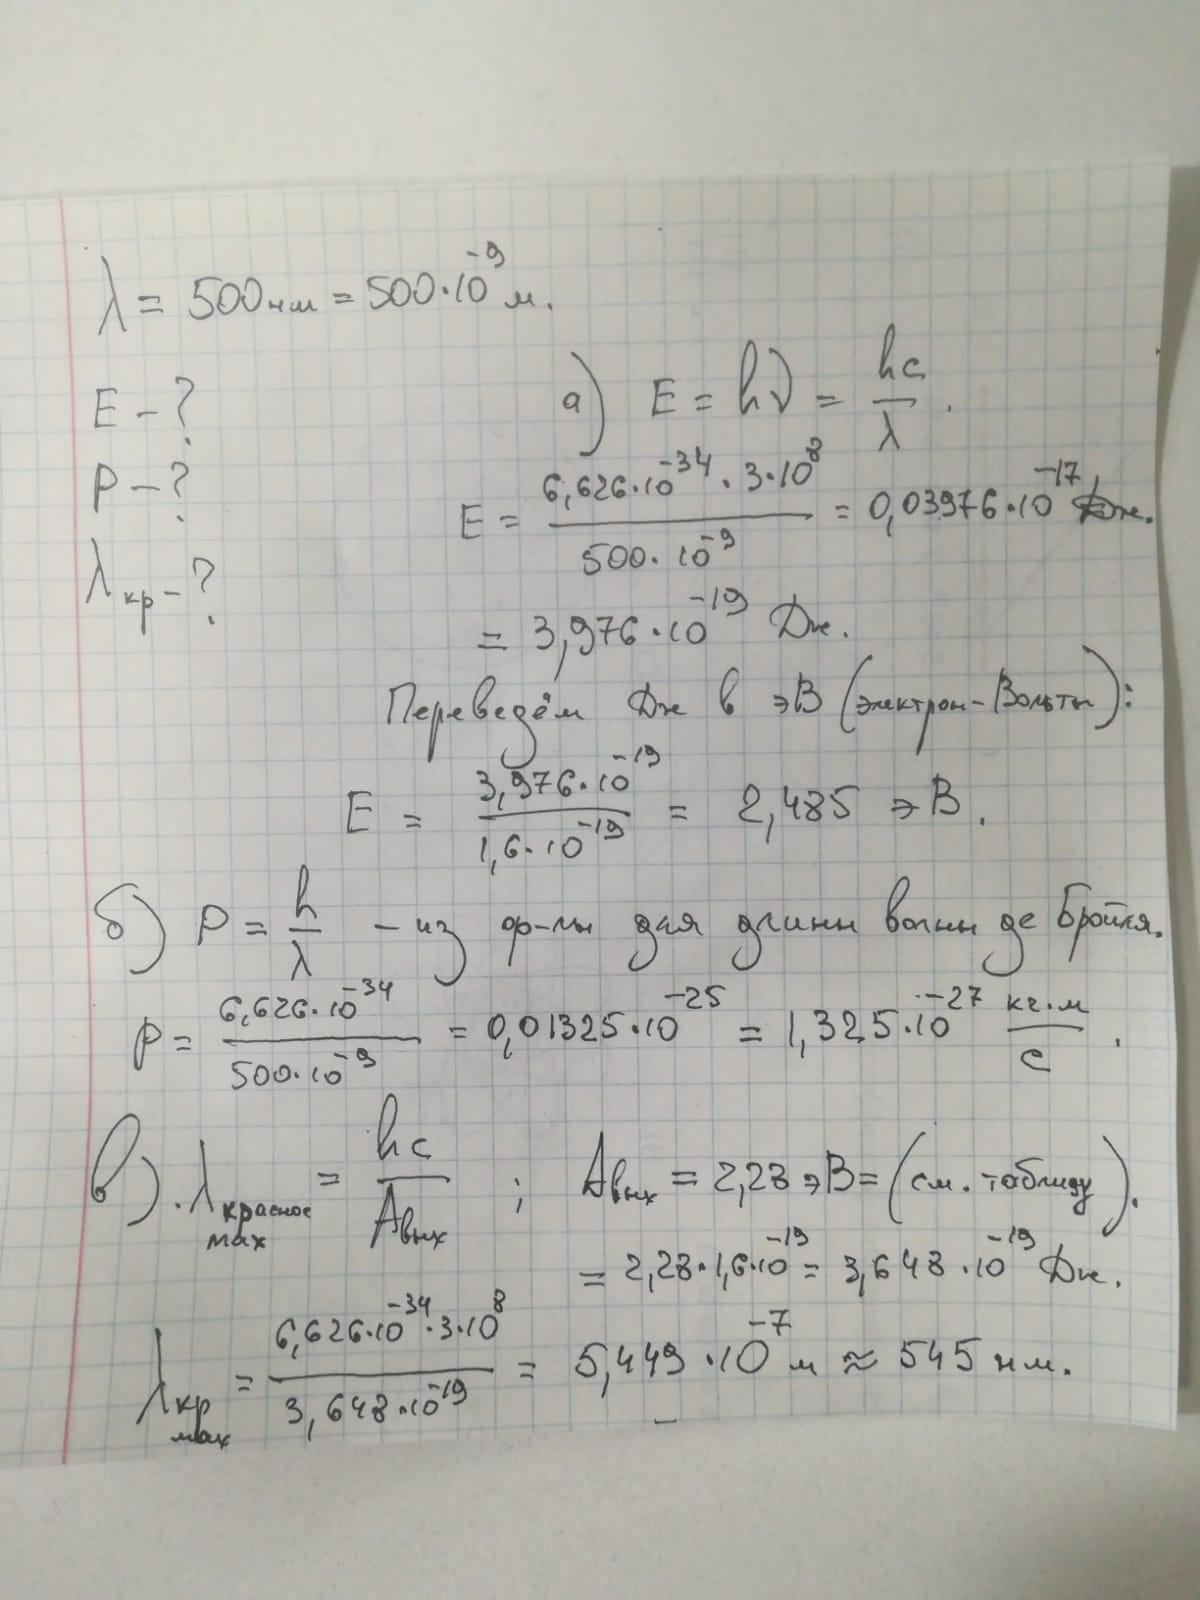 λ = 500нм = 500·10⁻⁹ м.
E – ?
P – ?
λкр – ?
а) E = hν = hc/λ.
E = (6,626·10⁻³⁴ · 3·10⁸)/(500·10⁻⁹) = 0,03976·10⁻¹⁷ Дж.
= 3,976·10⁻¹⁹ Дж.
Переведём Дж в эВ (электрон-Вольты):
E = (3,976·10⁻¹⁹)/(1,6·10⁻¹⁹) = 2,485 эВ.
б) P = h/λ – из ф-лы для длины волны де Бройля.
P = (6,626·10⁻³⁴)/(500·10⁻⁹) = 0,01325·10⁻²⁵ = 1,325·10⁻²⁷ кг·м/с.
в). λкрасное max = hc/Aвых ; Aвых = 2,28 эВ = (см. таблицу).
= 2,28·1,6·10⁻¹⁹ = 3,648·10⁻¹⁹ Дж.
λкр max = (6,626·10⁻³⁴·3·10⁸)/(3,648·10⁻¹⁹) = 5,449·10⁻⁷ м ≈ 545 нм.